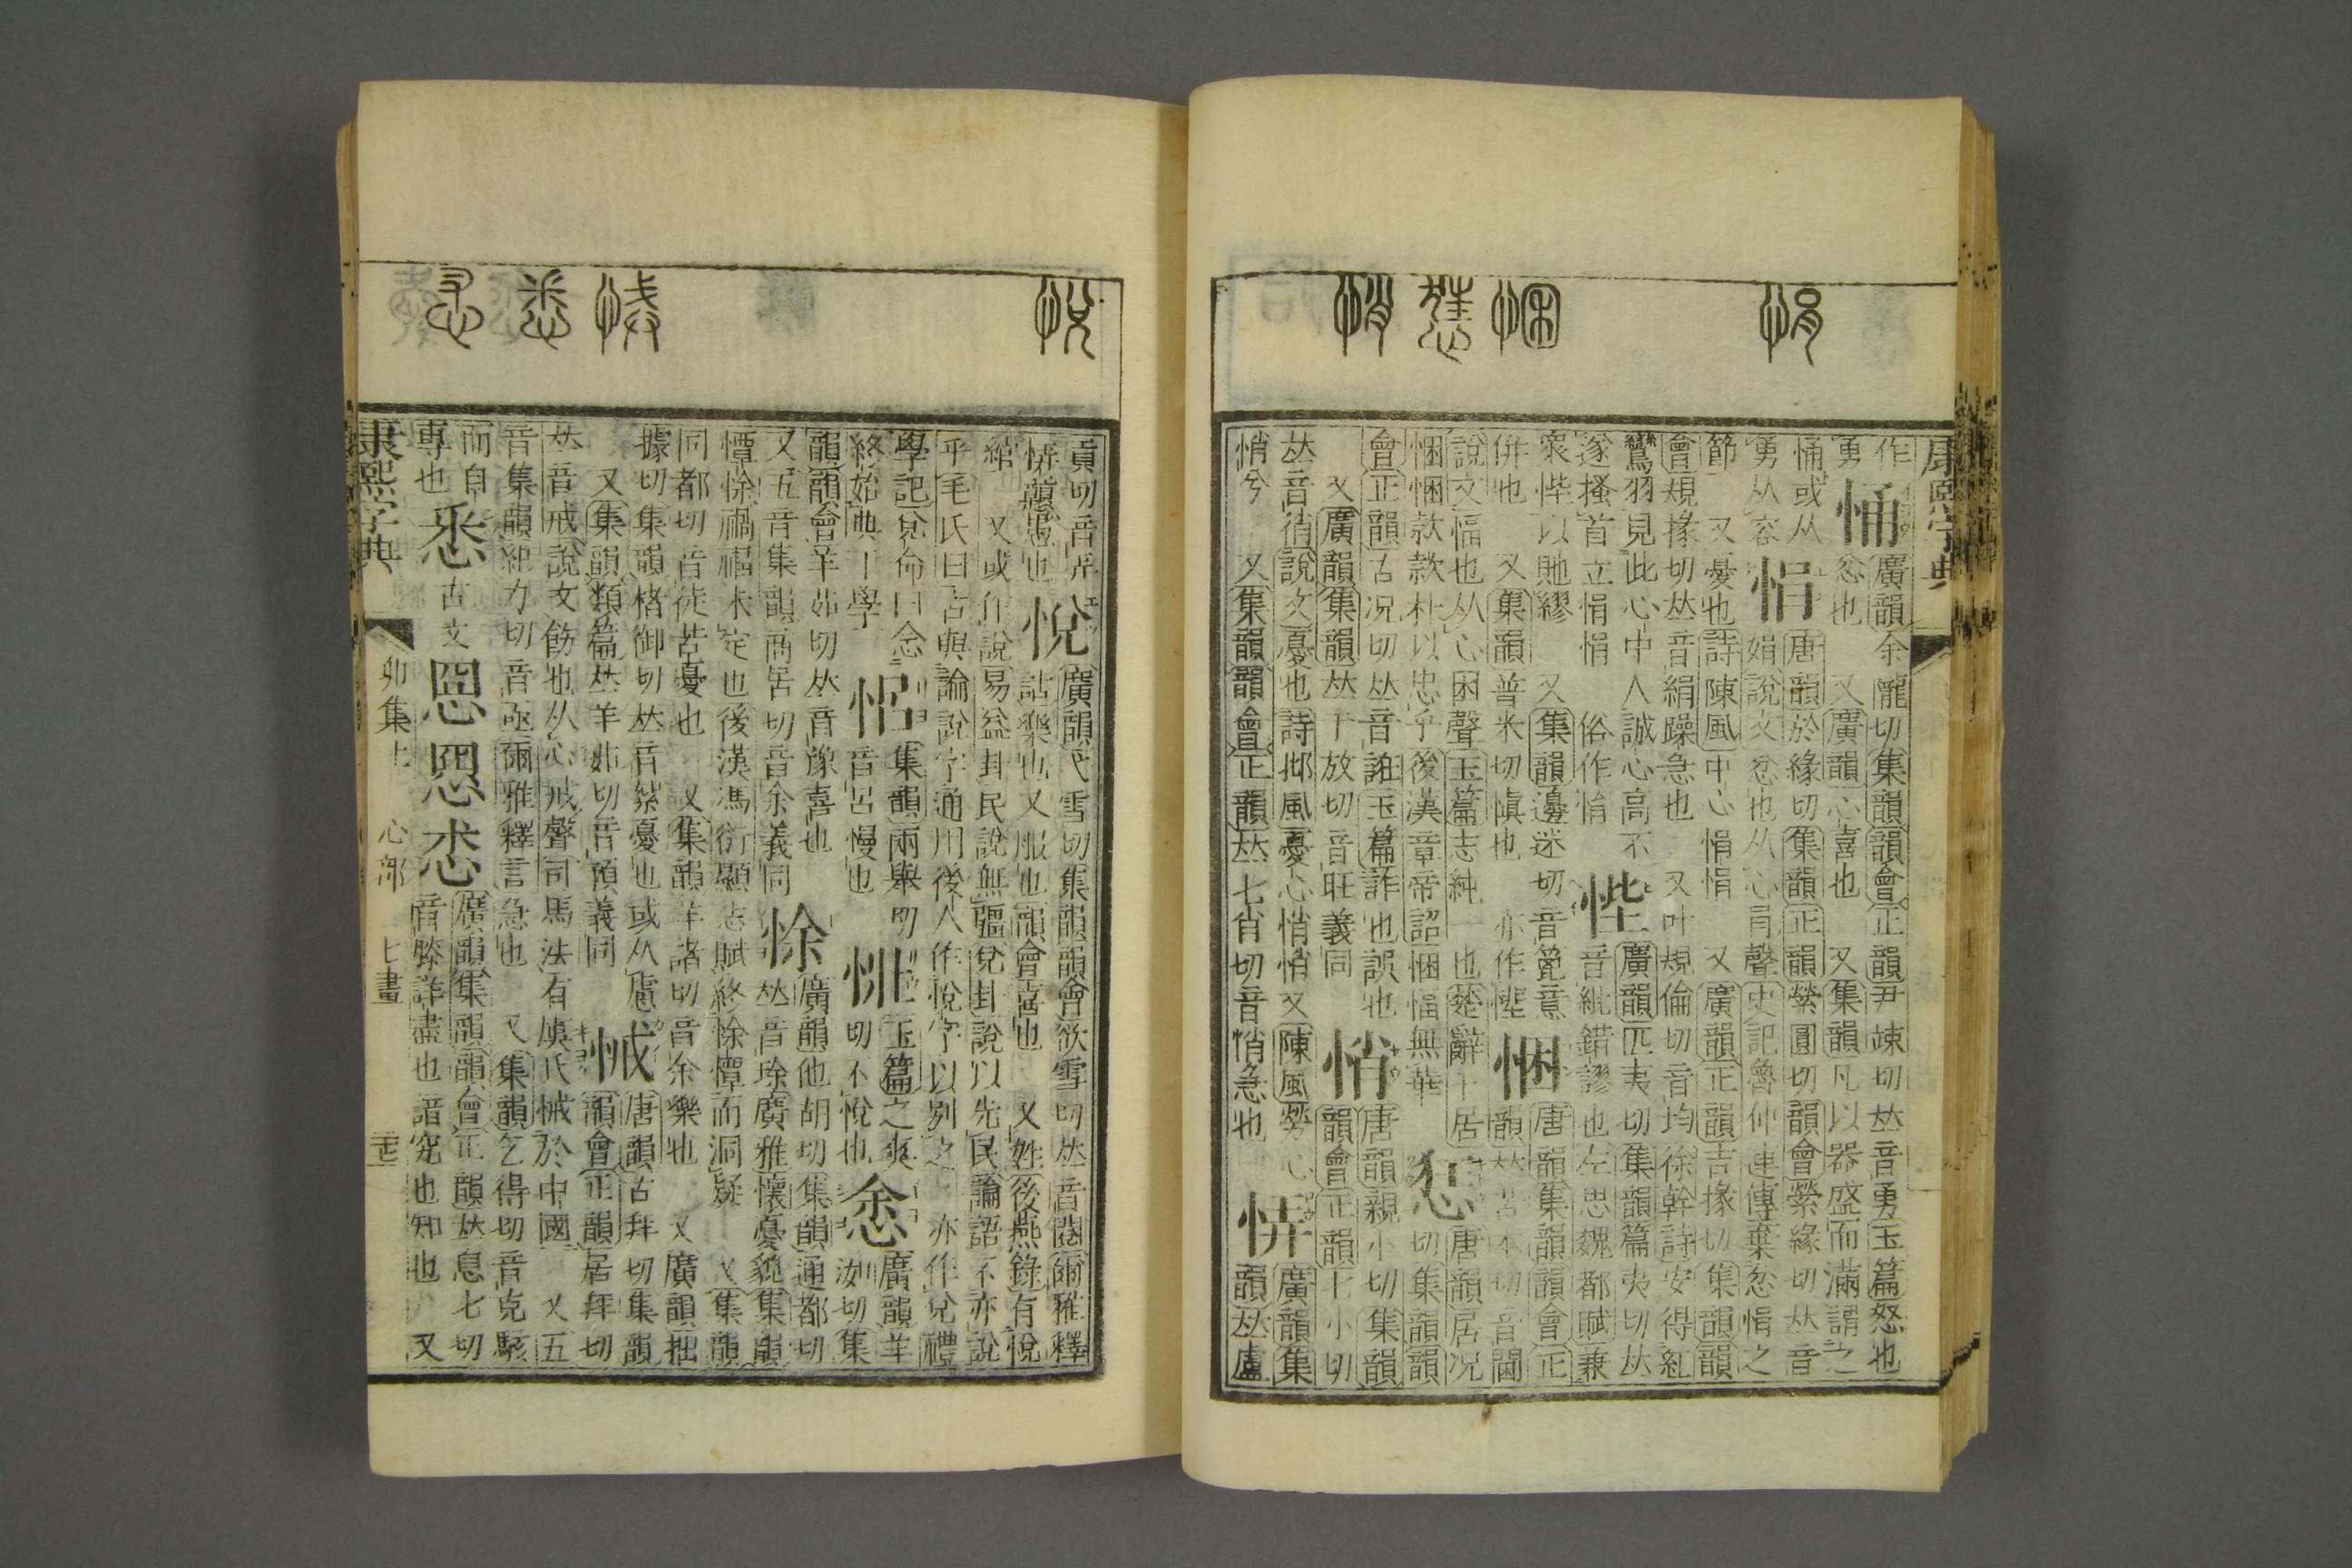 康熙字典
悁 悃 悄
作
勇
悀
廣韻余隴切集韻韻會正韻尹竦切𠀤音勇玉篇怒也
忿也 又廣韻心喜也 又集韻凡以器盛而滿謂之
悀或从
勇从容
悁
唐韻於緣切集韻正韻縈圓切韻會縈緣切𠀤音
娟說文忿也从心肙聲史記魯仲連傳棄忿悁之
節 又憂也詩陳風中心悁悁 又廣韻正韻吉掾切集韻韻
會規掾切𠀤音絹躁急也 又叶規倫切音均徐幹詩安得紅
鸞羽見此心中人誠心高不
遂搔首立悁悁 俗作
悂
廣韻匹夷切集韻篇夷切𠀤
音紕錯謬也左思魏都賦兼
衆悂以貤繆 又集韻邊迷切音篦意
併也 又集韻普米切愼也 亦作
悃
唐韻集韻韻會正
韻𠀤苦本切音閫
說文愊也从心困聲玉篇志純一也楚辭卜居
悃悃款款朴以忠乎後漢章帝詔悃愊無華
唐韻居況
切集韻韻
會正韻古況切𠀤音誑玉篇詐也誤也
又廣韻集韻𠀤于放切音旺義同
悄
唐韻親小切集韻
韻會正韻七小切
𠀤音說文憂也詩邶風憂心悄悄又陳風勞心
悄兮 又集韻韻會正韻𠀤七肖切音悄急也
廣韻集
韻𠀤盧
悅 悈 悉
貢切音弄
戇愚也
悅
廣韻弋雪切集韻韻會欲雪切𠀤音閱爾雅釋
詁樂也又服也韻會喜也 又姓後燕錄有悅
綰 又或作說易益卦民說無疆兌卦說以先民論語不亦說
乎毛氏曰古與論說字通用後人作悅字以別之 亦作兌禮
學記兌命曰念
終始典于學
㤭
集韻兩舉切
音呂慢也
玉篇之爽
切不悅也
悆
廣韻羊
洳切集
韻韻會羊茹切𠀤音豫喜也
又五音集韻商居切音余義同
悇
廣韻他胡切集韻通都切
𠀤音琭廣雅懷憂貌集韻
憛悇禍福未定也後漢馮衍顯志賦終悇憛而洞疑 又集韻
同都切音徒苦憂也 又集韻羊諸切音余樂也 又廣韻抽
據切集韻楮御切𠀤音絮憂也或从慮
又集韻類篇𠀤羊茹切音預義同
悈
唐韻古拜切集韻
韻會正韻居拜切
𠀤音戒說文飭也从心戒聲司馬法有虞氏悈於中國 又五
音集韻紀力切音亟爾雅釋言急也 又集韻乞得切音克駭
而自
專也
悉
古文
恖恖㤅
廣韻集韻韻會正韻𠀤息七切
音膝詳盡也諳究也知也 又
康熙字典
卯集上 心部 七畫